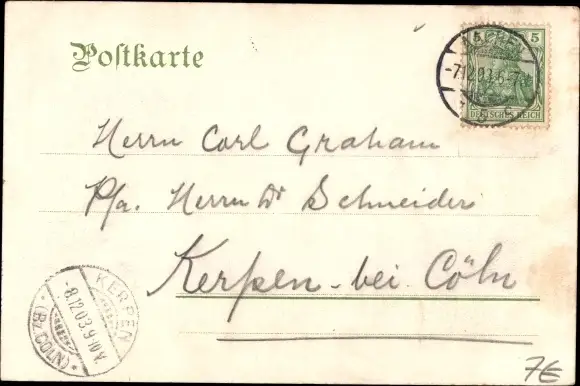 Postkarte
5 5
AACHEN
-7.12.03.6-7N.
5 c
DEUTSCHES REICH
Herrn Carl Graham
Pfa. Herrn Dr Schneider
Kerpen bei Cöln
KERPEN
-8.12.03.9-10V.
(Bz. CÖLN)
7€